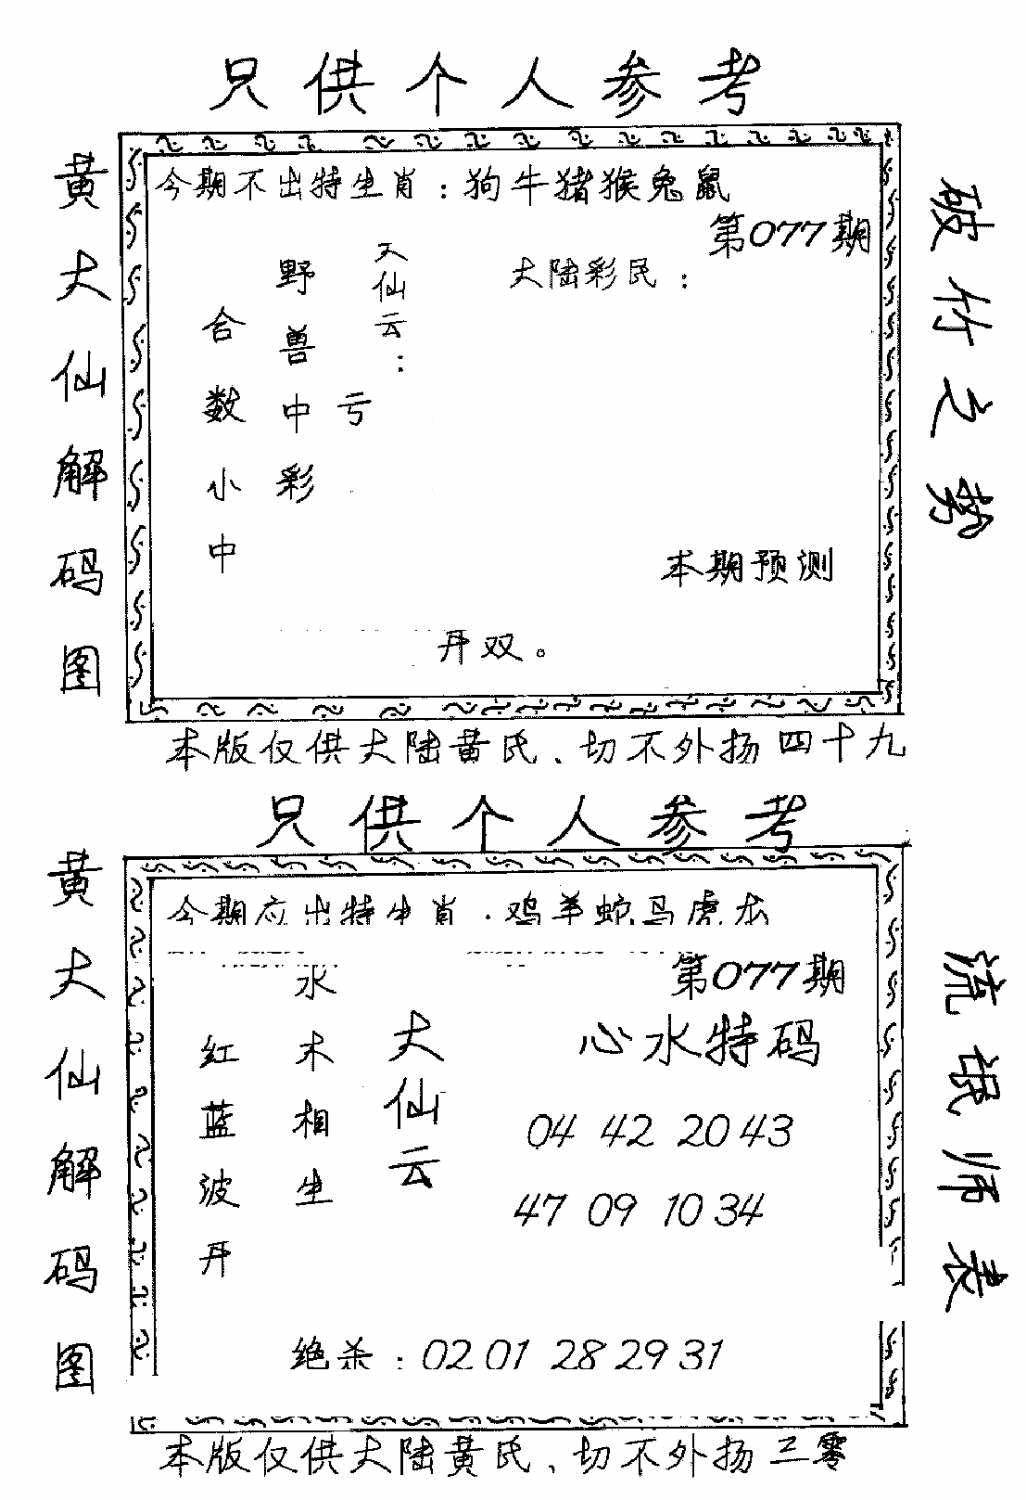 只供个人参考
黄大仙解码图
今期不出特生肖：狗牛猪猴兔鼠
第077期
大陆彩民：
大仙云：
亏
野兽中彩
合数小中
本期预测
开双。
破竹之势
本版仅供大陆黄氏、切不外扬四十九
只供个人参考
黄大仙解码图
今期应出特生肖：鸡羊蛇马虎龙
第077期
心水特码
04 42 20 43
47 09 10 34
大仙云
水木相生
红蓝波开
绝杀：02 01 28 29 31
流氓师表
本版仅供大陆黄氏、切不外扬三零